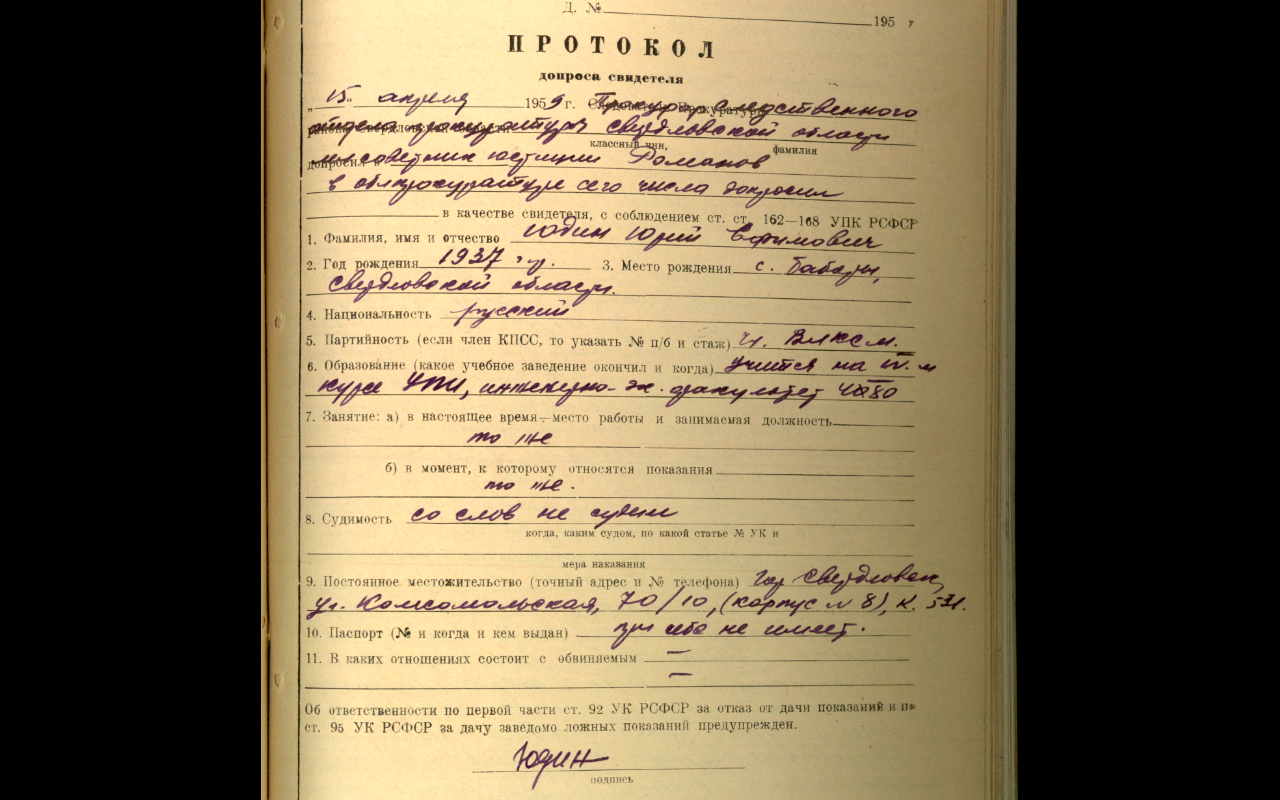 Д. № 195 г
ПРОТОКОЛ
допроса свидетеля
„15" апреля 1959 г. Прокурор следственного
отдела прокуратуры Свердловской области
мл советник юстиции Романов
классный чин, фамилия
в облпрокуратуре сего числа допросил
в качестве свидетеля, с соблюдением ст. ст. 162—168 УПК РСФСР
1. Фамилия, имя и отчество Юдин Юрий Ефимович
2. Год рождения 1937 г. 3. Место рождения с. Табары,
Свердловской области.
4. Национальность русский
5. Партийность (если член КПСС, то указать № п/б и стаж) чл. ВЛКСМ.
6. Образование (какое учебное заведение окончил и когда) учится на IV-м
курсе УПИ, инженерно-эк. факультет
7. Занятие: а) в настоящее время—место работы и занимаемая должность
то же
б) в момент, к которому относятся показания
то же.
8. Судимость со слов не судим
когда, каким судом, по какой статье № УК и
мера наказания
9. Постоянное местожительство (точный адрес и № телефона) гор Свердловск,
ул. Комсомольская, 70/10, (корпус № 8), к. 531.
10. Паспорт (№ и когда и кем выдан) при себе не имеет.
11. В каких отношениях состоит с обвиняемым —
—
Об ответственности по первой части ст. 92 УК РСФСР за отказ от дачи показаний и по
ст. 95 УК РСФСР за дачу заведомо ложных показаний предупрежден.
Юдин
подпись